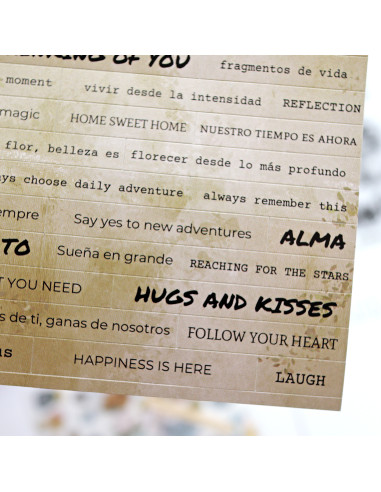 OF YOU fragmentos de vida
moment vivir desde la intensidad REFLECTION
magic HOME SWEET HOME NUESTRO TIEMPO ES AHORA
flor, belleza es florecer desde lo más profundo
choose daily adventure always remember this
Say yes to new adventures ALMA
Sueña en grande REACHING FOR THE STARS
YOU NEED HUGS AND KISSES
de ti, ganas de nosotros FOLLOW YOUR HEART
HAPPINESS IS HERE LAUGH